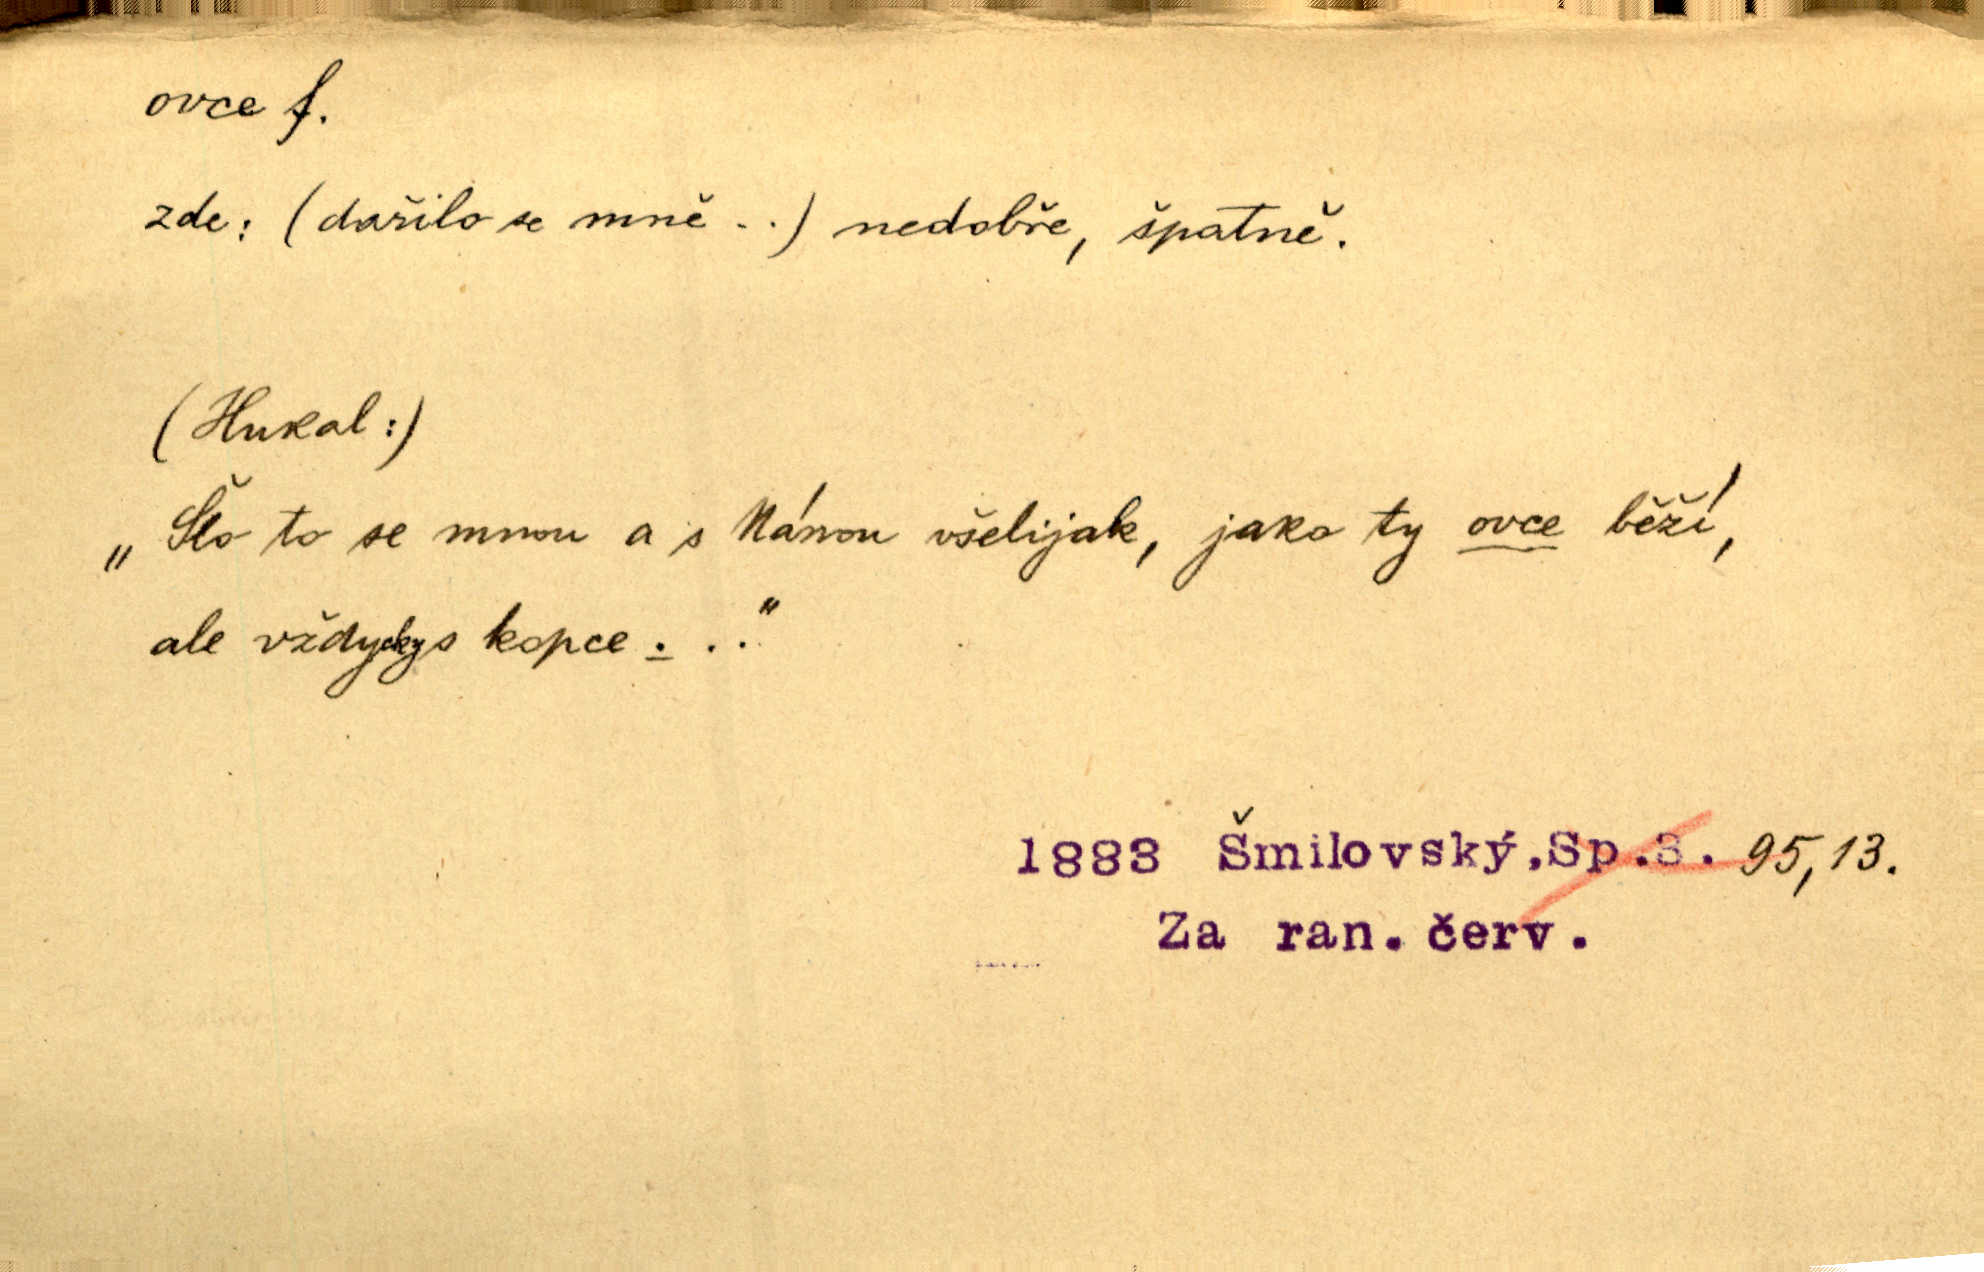 ovce f.
zde: (dařilo se mně ..) nedobře, špatně.
(Hukal:)
„Šlo to se mnou a s Nánou všelijak, jako ty ovce běží,
ale vždycky s kopce . . .“
1883 Šmilovský, Sp. 3. 95, 13.
Za ran. červ.